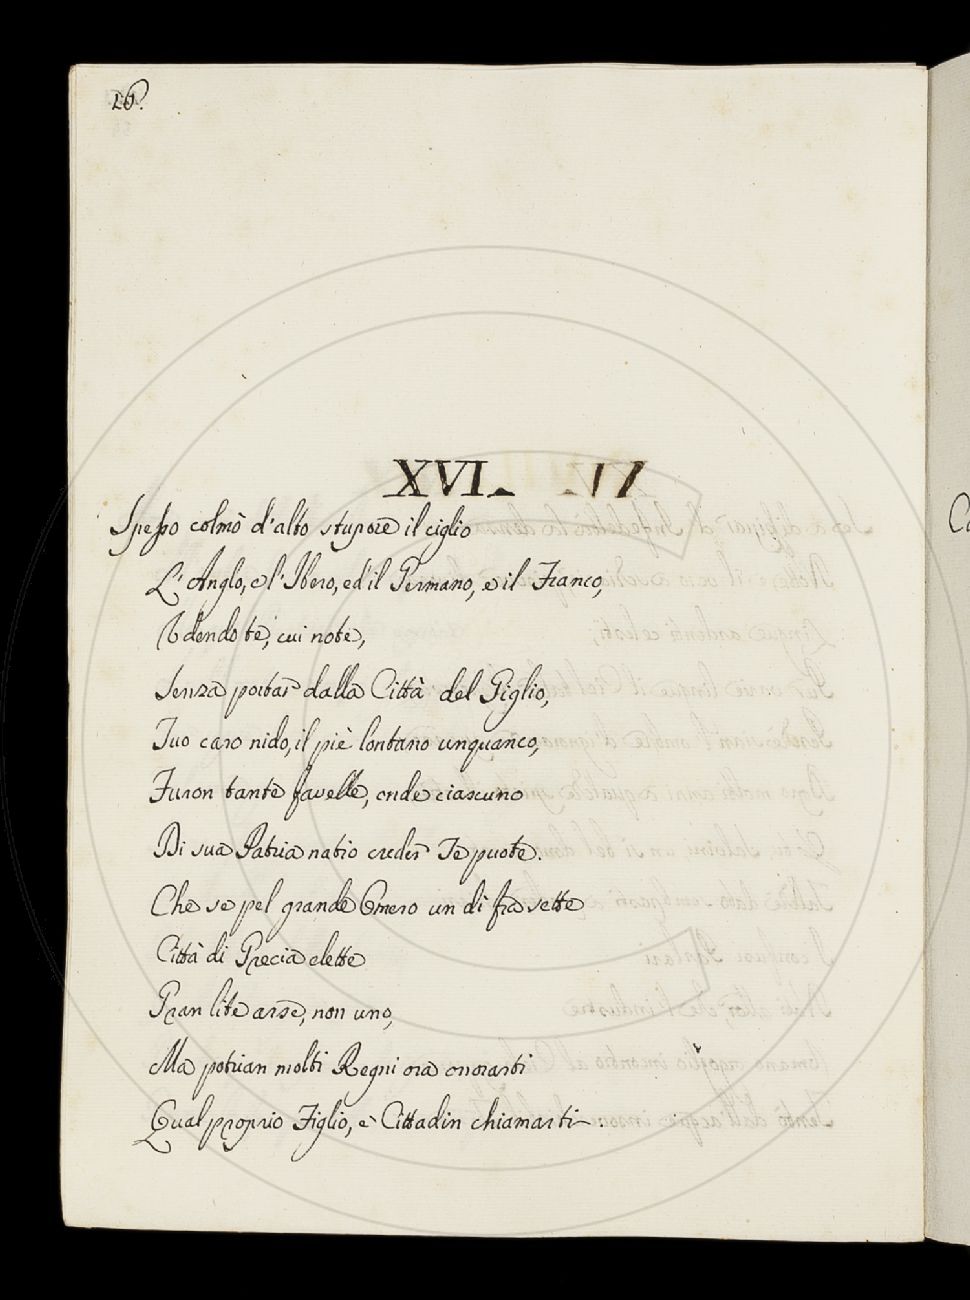 16.
XVI.
Spesso colmò d'alto stupore il ciglio
L'Anglo, e l'Ibero, ed'il Germano, e il Franco,
Udendo te, cui note,
Senza portar dalla Città del Giglio,
Tuo caro nido, il piè lontano unquanco,
Furon tante favelle, onde ciascuno
Di sua Patria natio creder Te puote.
Che se pel grande Omero un dì fra sette
Città di Grecia elette
Gran lite arse, non uno,
Ma potrian molti Regni ora onorarti
Qual proprio Figlio, e Cittadin chiamarti.